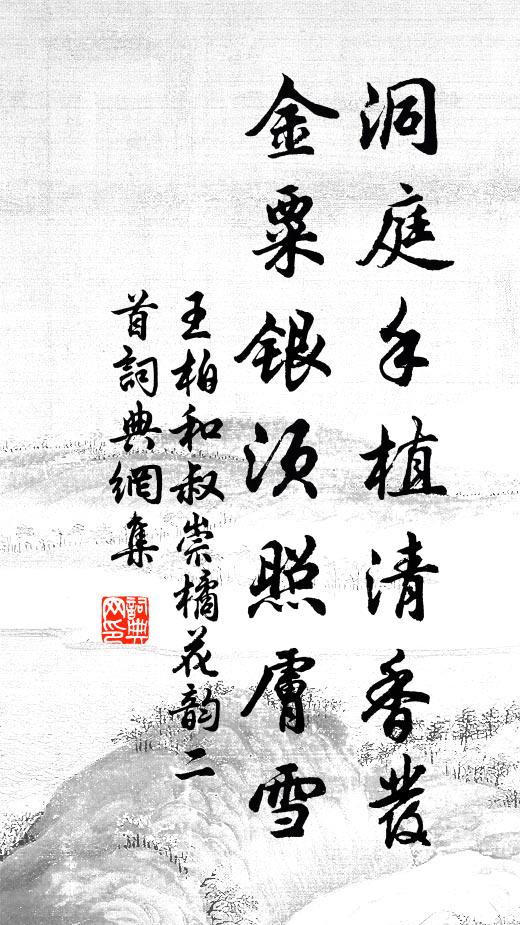 洞庭手植清香發
金粟銀須照膚雪
王柏和叔崇橘花韵二
首詞典網集
詞典
网印